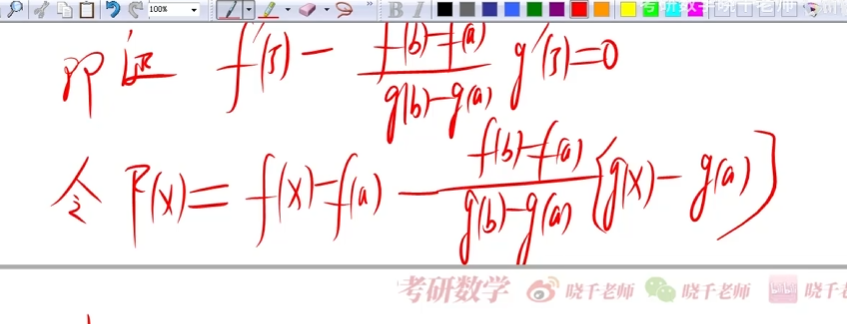 100%
B I
考研数学晓千老师
即证 f'(ξ) - \frac{f(b)-f(a)}{g(b)-g(a)} g'(ξ)=0
令 F(x) = f(x)-f(a) - \frac{f(b)-f(a)}{g(b)-g(a)} [g(x)-g(a)]
考研数学 晓千老师 晓千老师 bilibili 晓千